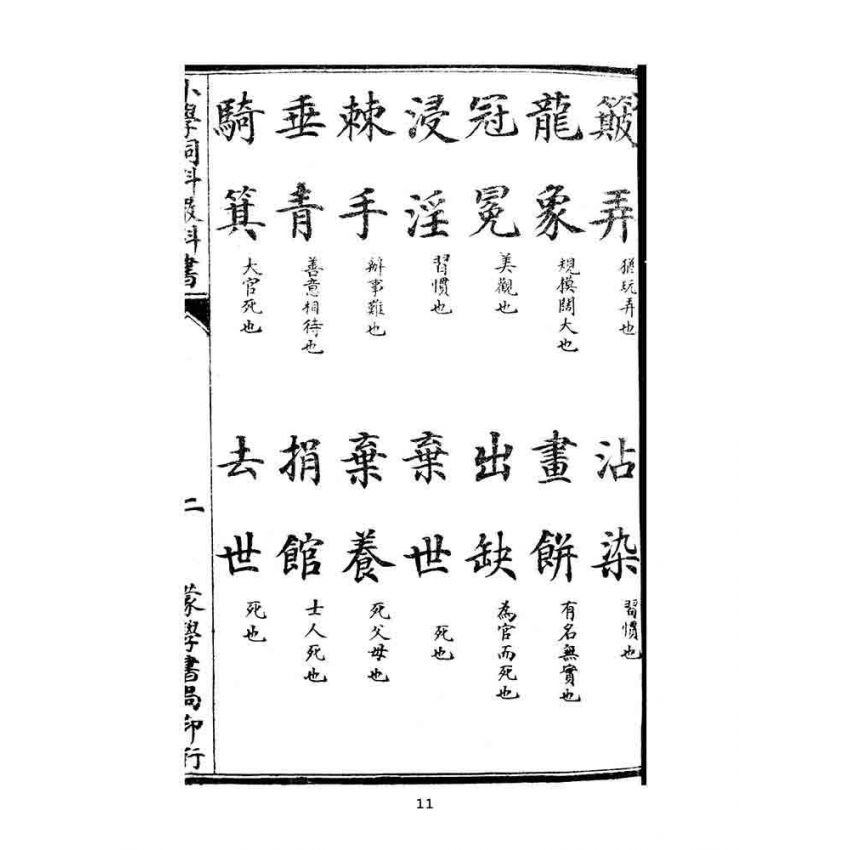 簸弄 猶玩弄也 沾染 習慣也
龍象 規模闊大也 畫餅 有名無實也
冠冕 美觀也 出缺 為官而死也
浸淫 習慣也 棄世 死也
棘手 辦事難也 棄養 死父母也
垂青 善意相待也 捐館 士人死也
騎箕 大官死也 去世 死也
小學詞料教科書 二 蒙學書局印行
11